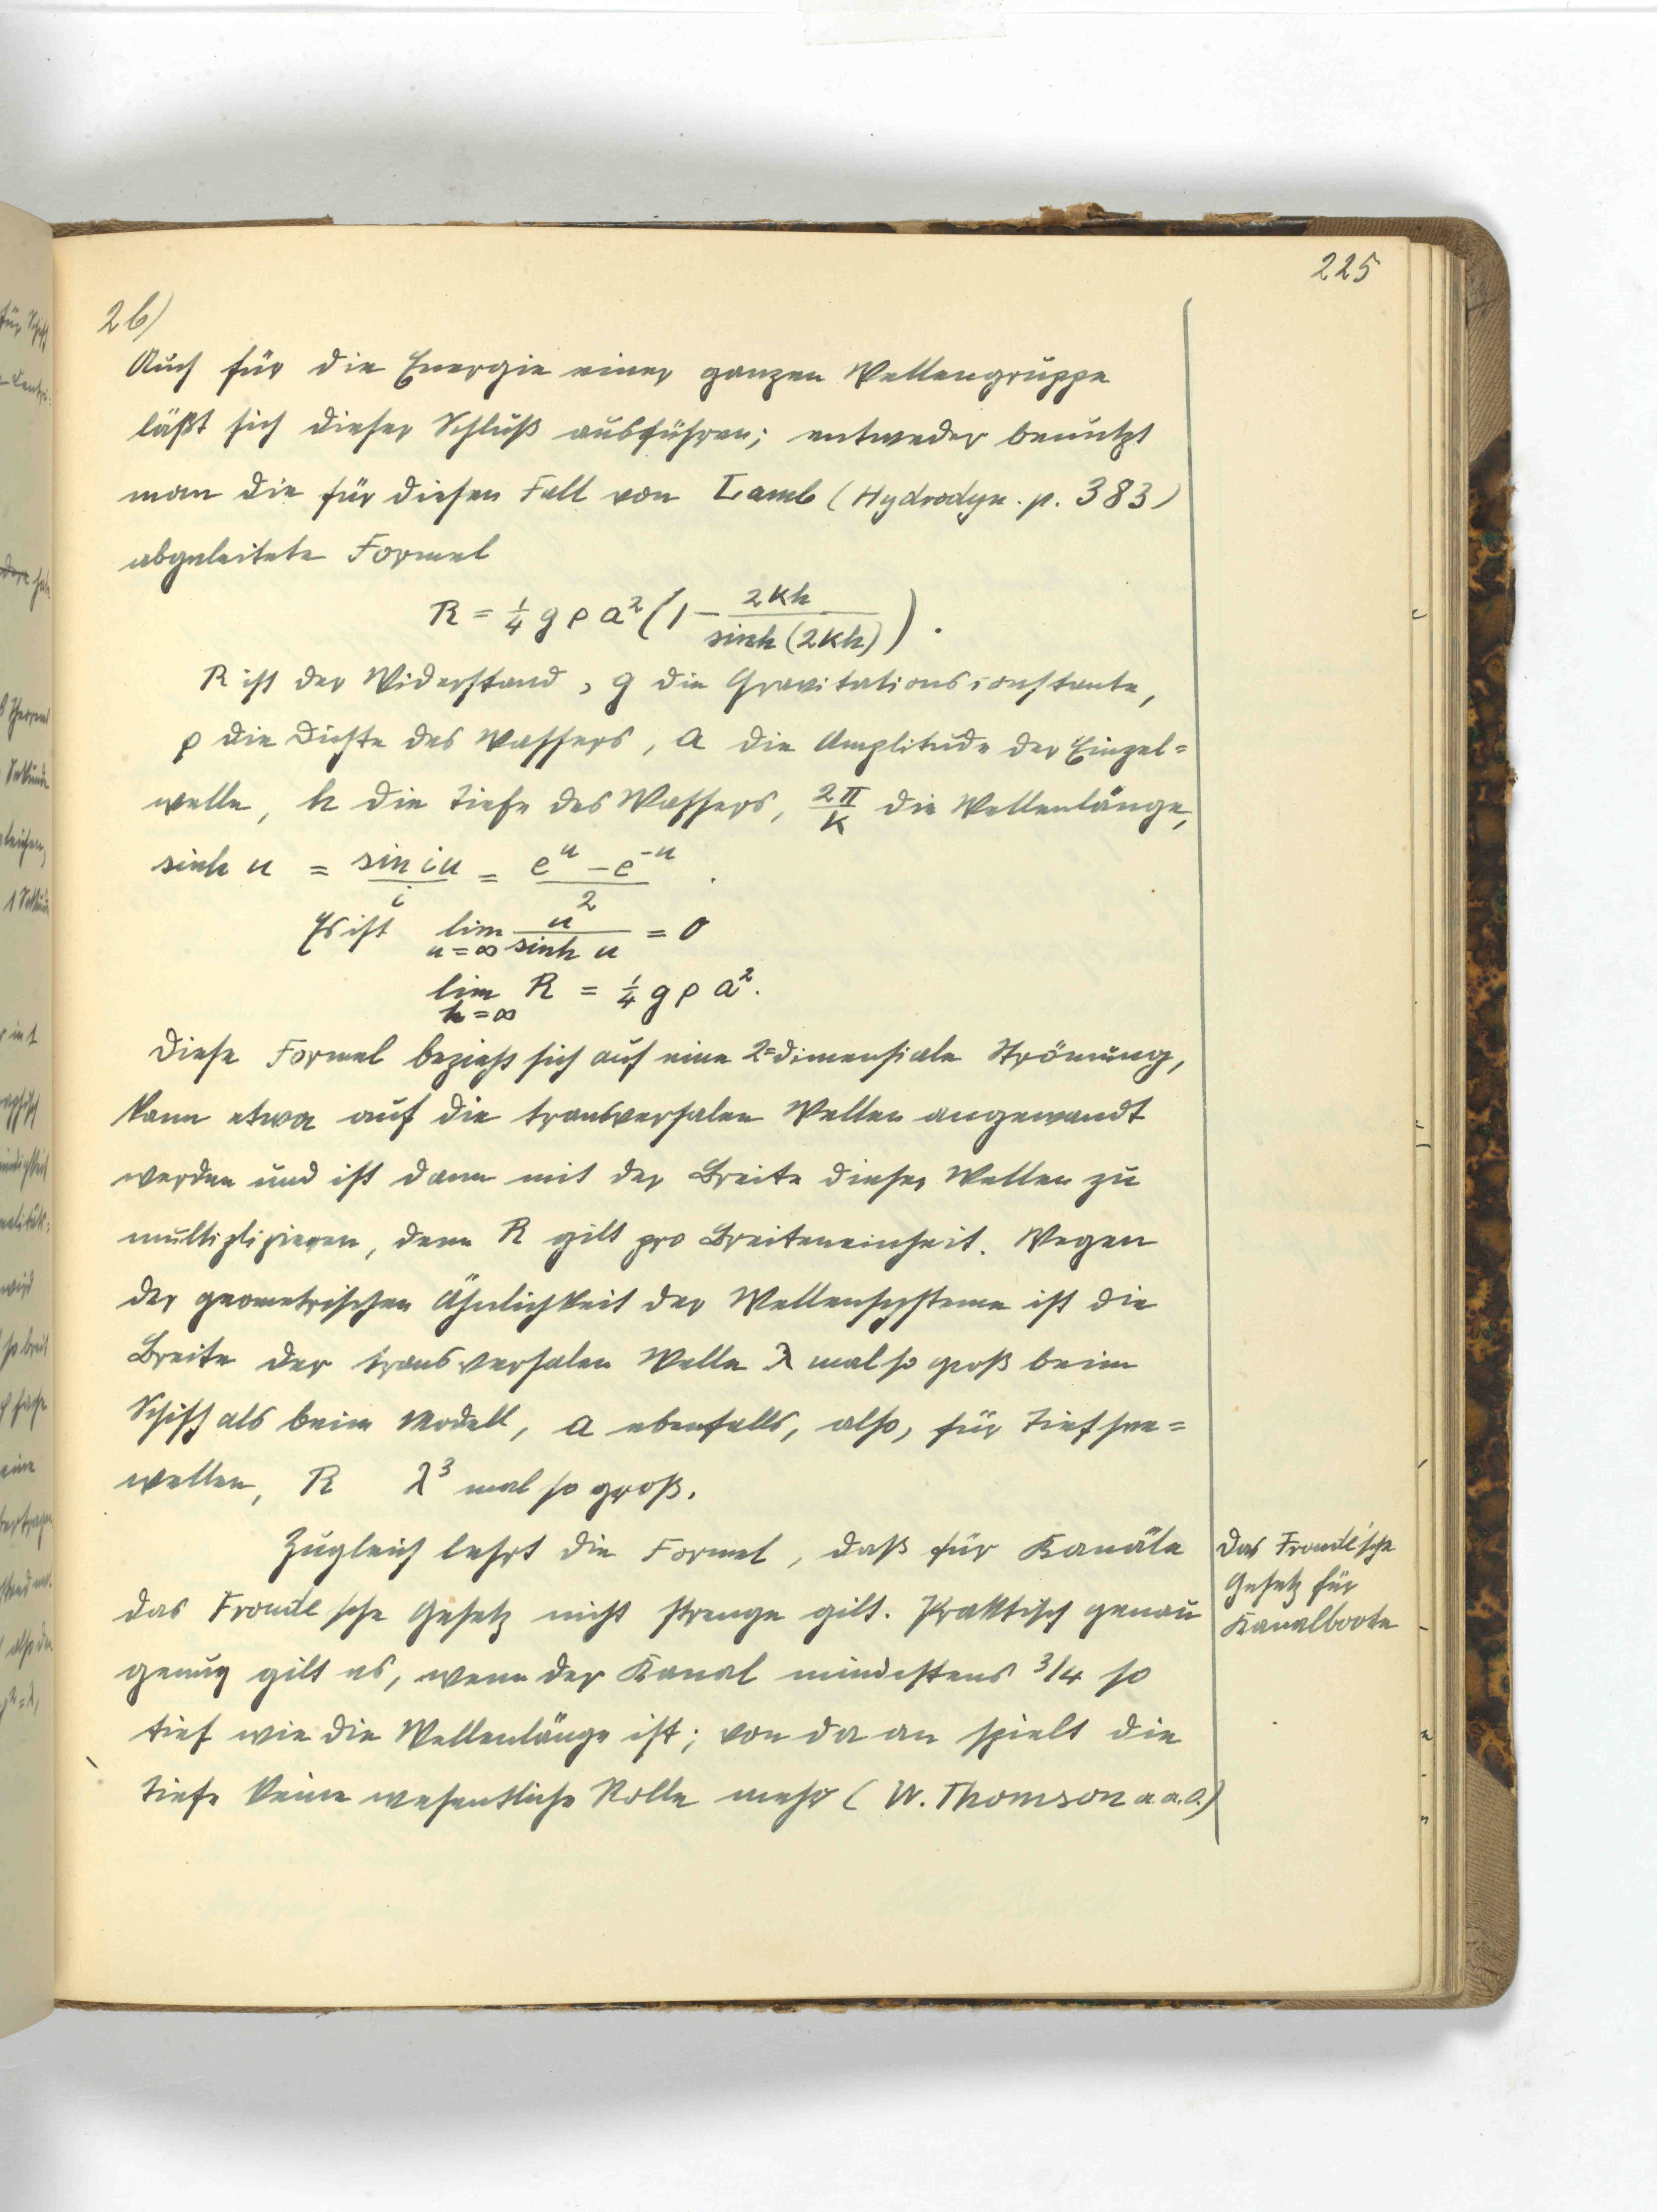 225
26)
Auch für die Energie einer ganzen Wellengruppe
läßt sich dieser Schluß ausführen; entweder benutzt
man die für diesen Fall von Lamb (Hydrodyn. p. 383)
abgeleitete Formel
R = 1/4 g ρ a² (1 − 2kh / sinh (2kh)).
R ist der Widerstand, g die Gravitationsconstante,
ρ die Dichte des Wassers, a die Amplitude der Einzel=
welle, h die Tiefe des Wassers, 2π/k die Wellenlänge,
sinh u = sin iu / i = (e^u − e^−u) / 2.
Es ist lim u=∞ u / sinh u = 0
lim h=∞ R = 1/4 g ρ a².
Diese Formel bezieht sich auf eine 2=dimensiale Strömung,
kann etwa auf die transversalen Wellen angewandt
werden und ist dann mit der Breite dieser Wellen zu
multiplizieren, denn R gilt pro Breiteneinheit. Wegen
der geometrischen Ähnlichkeit der Wellensysteme ist die
Breite der transversalen Welle λ mal so groß beim
Schiff als beim Modell, a ebenfalls, also, für Tiefsee=
wellen, R λ³ mal so groß.
Zugleich lehrt die Formel, daß für Kanäle
das Froude'sche Gesetz nicht strenge gilt. Praktisch genau
genug gilt es, wenn der Kanal mindestens 3/4 so
tief wie die Wellenlänge ist; von da an spielt die
Tiefe keine wesentliche Rolle mehr (W. Thomson a.a.O.)
Das Froude'sche
Gesetz für
Kanalboote